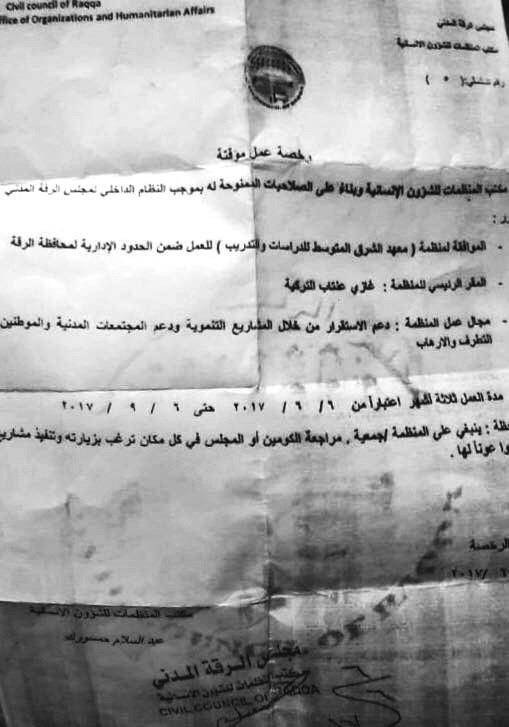 Civil council of Raqqa
ffice of Organizations and Humanitarian Affairs
مجلس الرقة المدني
مكتب المنظمات للشؤون الانسانية
رقم تسلسلي: ( ٥ )
رخصة عمل مؤقتة
مكتب المنظمات للشؤون الإنسانية وبناءً على الصلاحيات الممنوحة له بموجب النظام الداخلي لمجلس الرقة المدني
- الموافقة لمنظمة ( معهد الشرق المتوسط للدراسات والتدريب ) للعمل ضمن الحدود الإدارية لمحافظة الرقة
- المقر الرئيسي للمنظمة : غازي عنتاب التركية
- مجال عمل المنظمة : دعم الاستقرار من خلال المشاريع التنموية ودعم المجتمعات المدنية والموطنين
التطرف والارهاب
مدة العمل ثلاثة أشهر اعتباراً من ٦ / ٦ / ٢٠١٧ حتى ٦ / ٩ / ٢٠١٧
ينبغي على المنظمة /جمعية , مراجعة الكومين أو المجلس في كل مكان ترغب بزيارته وتنفيذ مشاريع
عوناً لها .
الرخصة
٢٠١٧
مكتب المنظمات للشؤون الانسانية
عبد السلام
مجلس الرقة المدني
مكتب المنظمات للشؤون الإنسانية
CIVIL COUNCIL OF RAQQA